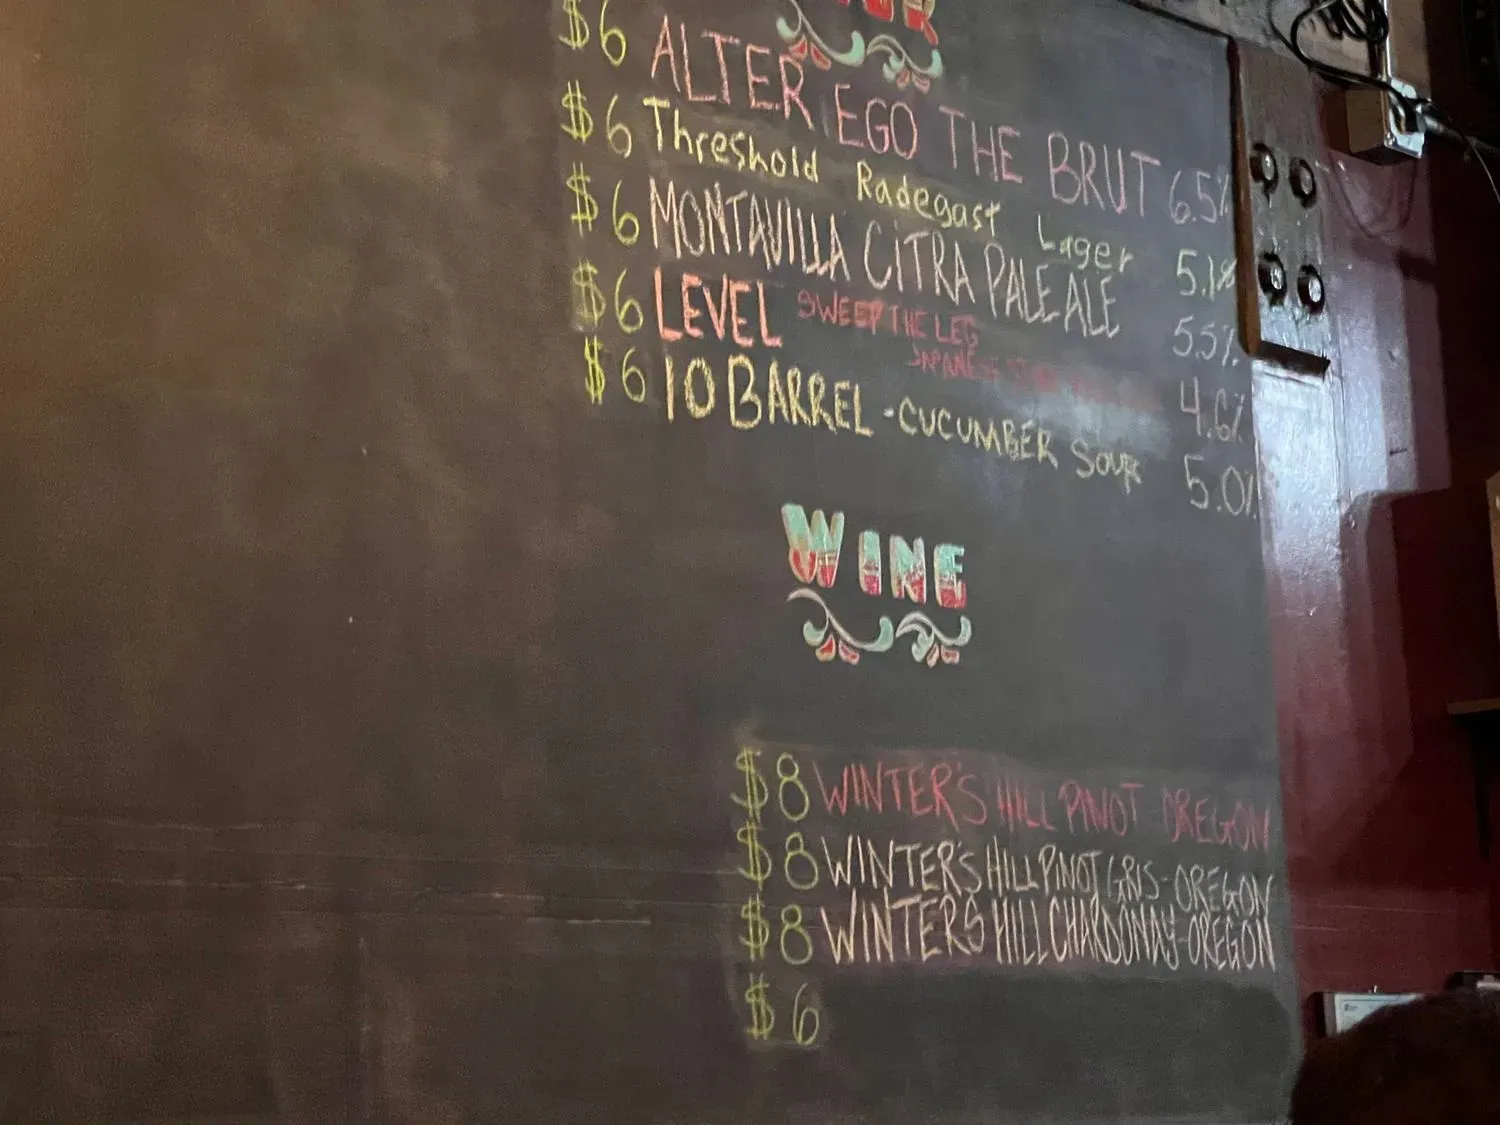 $6 ALTER EGO THE BRUT 6.5%
$6 Threshold Radegast Lager 5.1%
$6 MONTAVILLA CiTRA PALE ALE 5.5%
$6 LEVEL SWEEP THE LEG 4.6%
JAPANESE
$6 10 BARREL - CUCUMBER SOUR 5.0%
WINE
$8 WINTER'S HILL PINOT OREGON
$8 WINTER'S HILL PINOT GRIS - OREGON
$8 WINTER'S HILL CHARDONAY - OREGON
$6